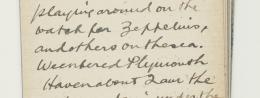 playing around on the
watch for Zeppelins,
and others on the sea.
We entered Plymouth
Haven about 7 a.m. the
under the